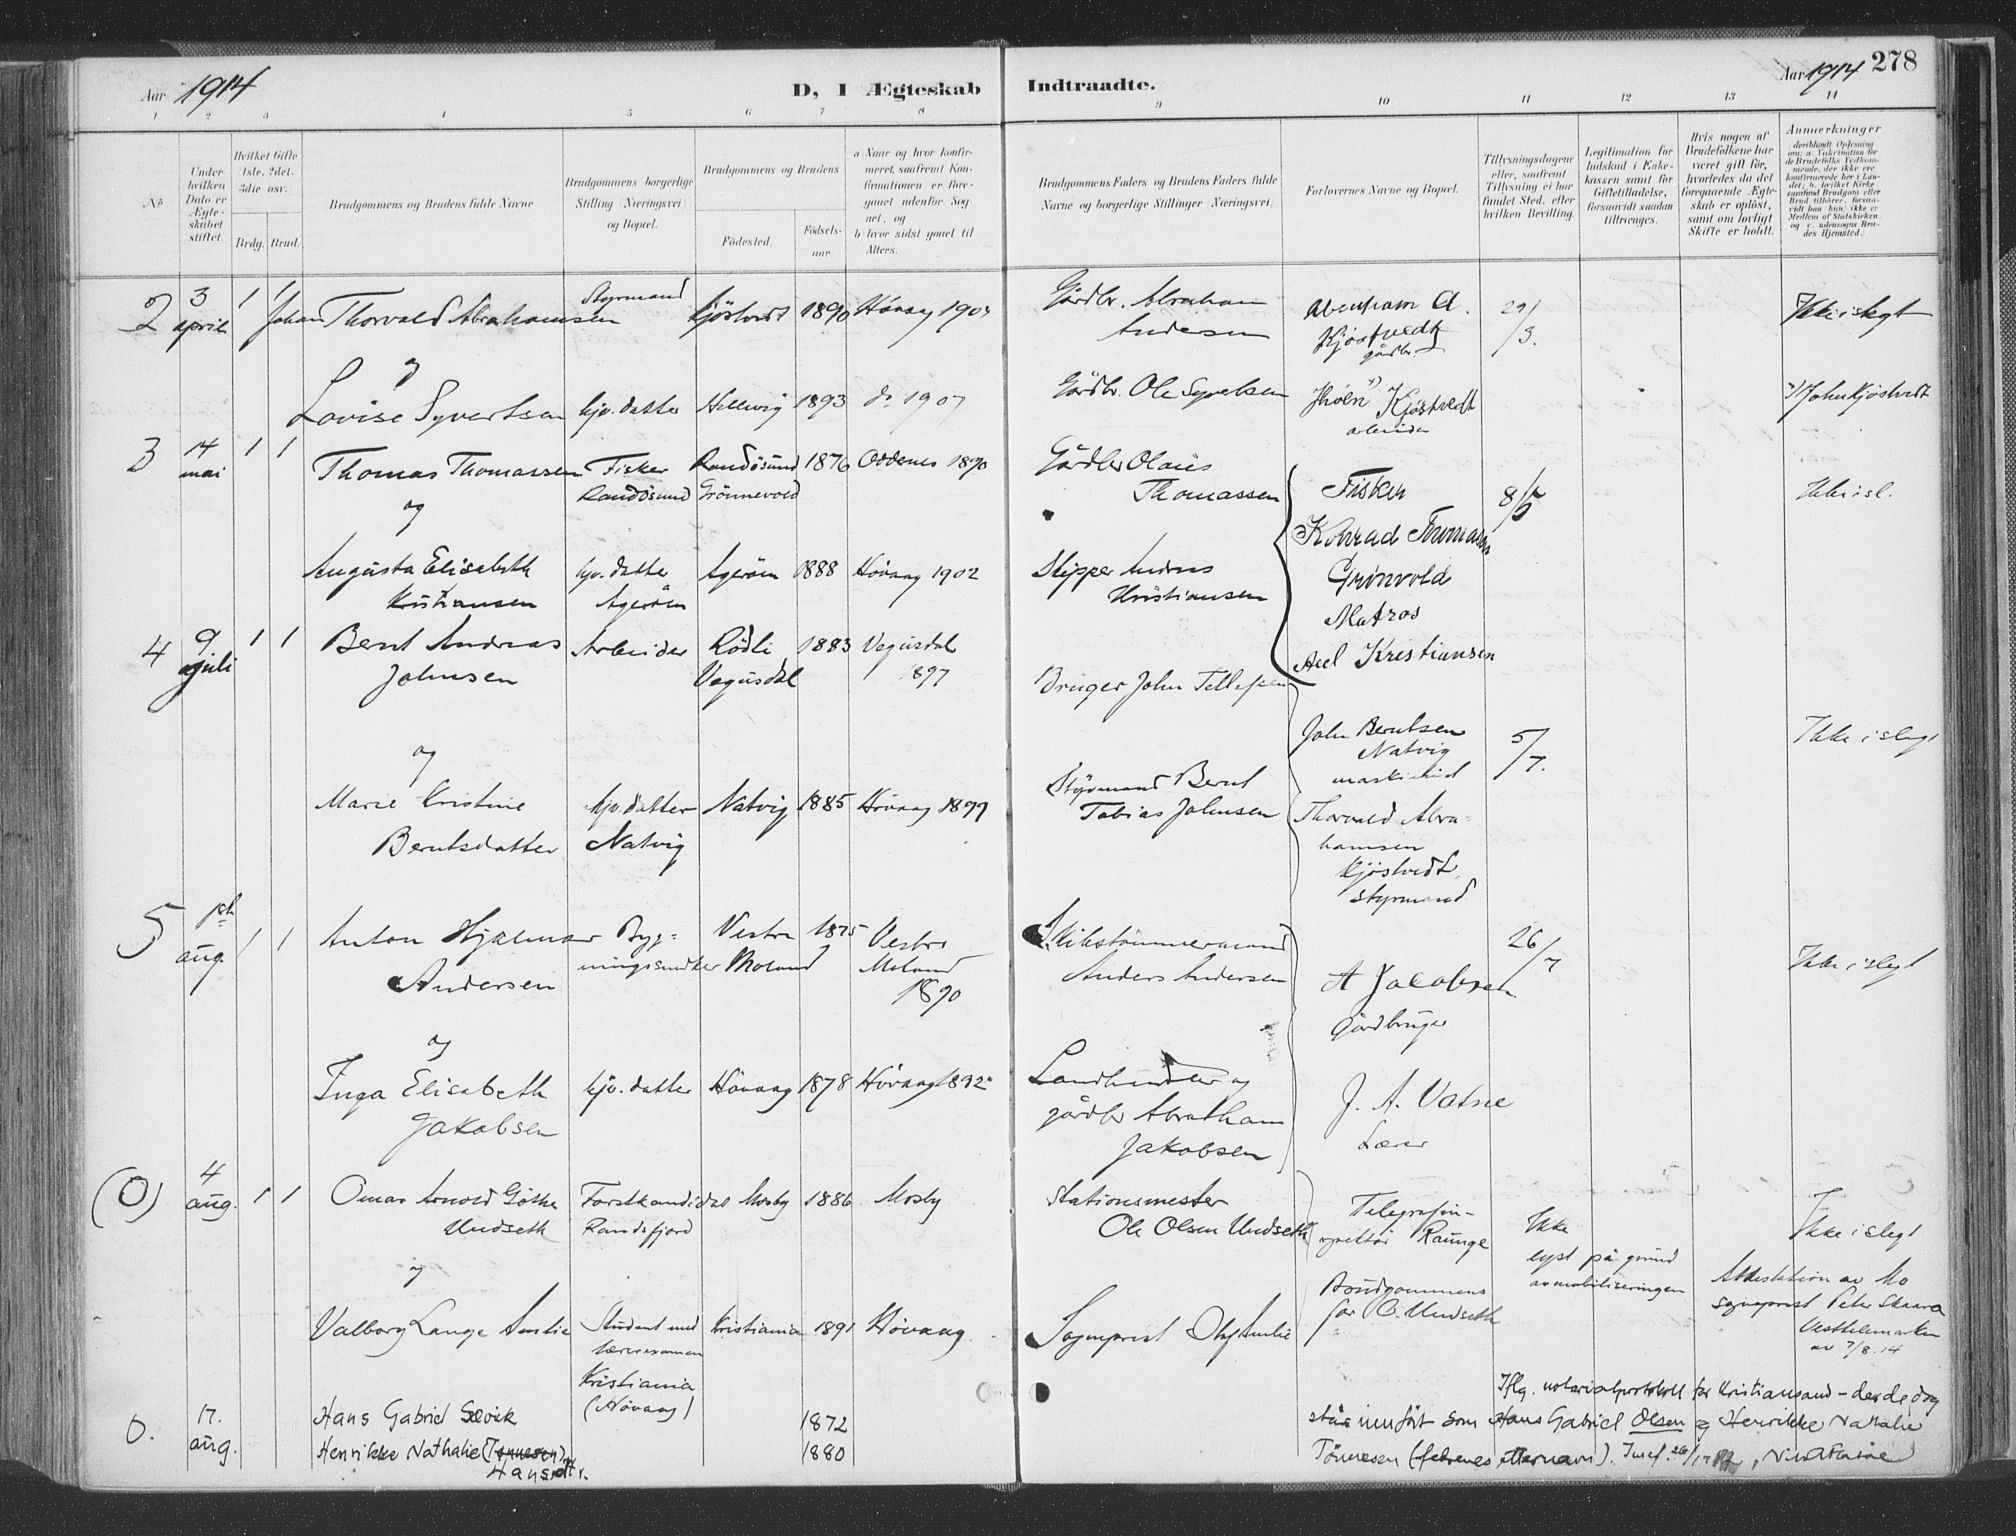 Aar 1914
D, I Ægteskab Indtraadte.
Aar 1914 278
1 2 3 4 5 6 7 8 9 10 11 12 13 14
No
Under hvilken Dato er Ægteskabet stiftet.
Hvilket Gifte 1ste, 2det, 3die osv.
Brdg. Brud.
Brudgommens og Brudens fulde Navne
Brudgommens borgerlige Stilling (Næringsvei) og Bopæl.
Brudgommens og Brudens
Fødested.
Fødselsaar
a) Naar og hvor konfirmeret, saafremt Konfirmationen er foregaaet udenfor Sognet, og
b) hvor sidst gaaet til Alters.
Brudgommens Faders og Brudens Faders fulde Navne og borgerlige Stillinger (Næringsvei)
Forlovernes Navne og Bopæl.
Tillysningsdagene eller, saafremt Tillysning ei har fundet Sted, efter hvilken Bevilling.
Legitimation for Indskud i Enkekassen samt for Giftetilladelse, forsaavidt saadan tiltrænges.
Hvis nogen af Brudefolkene har været gift før, hvorledes da det foregaaende Ægteskab er opløst, samt om lovligt Skifte er holdt.
Anmerkninger
2 3 april 1 1 Johan Thorvald Abrahamsen Styrmand Kjöstvedt 1890 Hövaag Gårdbr. Abraham Andersen Abraham A. Kjöstvedt gårdbr. 29/3. Ikke i slegt
og
Lovise Syvertsen hjv. datter Hellevig 1893 do 1907 Gårdbr. Ole Kjöstvedt arbeider John Kjöstvedt
3 14 mai 1 1 Thomas Thomassen Fisker Randösund Randösund Grönnevold 1876 Oddernes 1890 Gårdbr Olaus Thomassen Fisker Konrad Thomassen Grönvold 8/5 Ikke i sl.
og
Augusta Elisabeth Kristiansen hjv. datter Ageröen Ageröen 1888 Hövaag 1902 Skipper Andreas Kristiansen Matros Axel Kristiansen
4 9 juli 1 1 Bernt Andreas Johnsen Arbeider Rödli Vegusdal 1883 Vegusdal 1897 Bruger John Tellefsen John Berntsen Natvig maskinist 5/7. Ikke i slegt
og
Marie Kristine Berntsdatter hjv. datter Natvig Natvig 1885 Hövaag 1899 Styrmand Bernt Tobias Johnsen Thorvald Abrahamsen Kjöstvedt, styrmand
5 1ste aug. 1 1 Anton Hjalmar Andersen Bygningssnedker Vestre Moland 1875 Vestre Moland 1890 Skibstömmermand Anders Andersen A Jacobsen Gårdbruger 26/7 Ikke i slegt
og
Inga Elisabeth Jakobsen hjv. datter Hövaag 1878 Hövaag 1892 Landhandler og gårdbr Abraham Jakobsen J. A. Vatne Lærer
(0) 4 aug. 1 1 Omar Arnold Göthe Undseth Forstkandidat Randsfjord Mosby 1886 Mosby Stationsmester Ole Olsen Undseth Telegrafinspektör Raunge Ikke lyst på grund av mobiliseringen Ikke i slegt
og
Valborg Lange Student med lærerexamen Kristiania (Hövaag) Kristiania 1891 Hövaag. Sogneprest Brudgommens far O. Undseth Attestation av Mo sogneprest Peter Skaara Vesttelemarken av 7/8.14
0. 17. aug. Hans Gabriel Sævik 1872 Iflg. notarialprotokoll for Kristiansand – der de dog
Henrikke Nathalie (Tønnesen) Hansdtr. 1880 står innfört som Hans Gabriel Olsen og Henrikke Nathalie
Tönnesen (fedrenes etternavn).